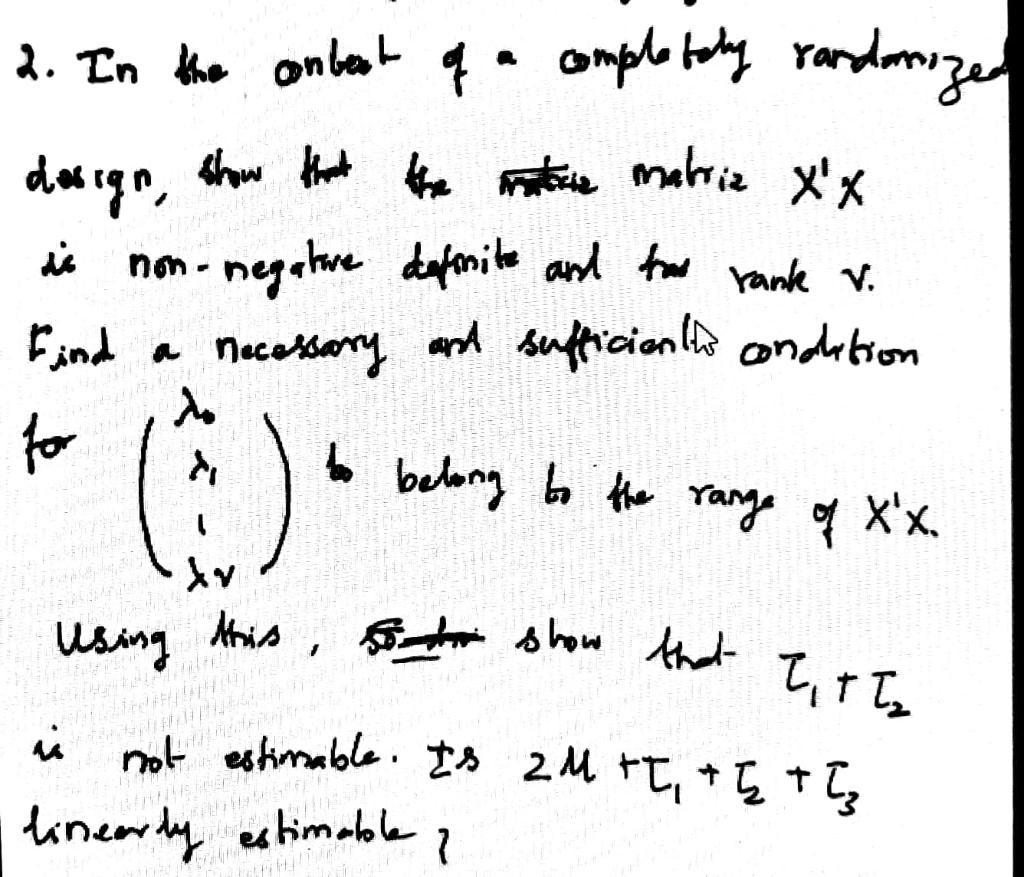 2. In the context of a completely randomized
design, show that the matrix X'X
is non-negative definite and has rank v.
Find a necessary and sufficient condition
for (λ₀ λ₁ | λv) to belong to the range of X'X.
Using this, show that τ₁ + τ₂
is not estimable. Is 2μ + τ₁ + τ₂ + τ₃
linearly estimable?